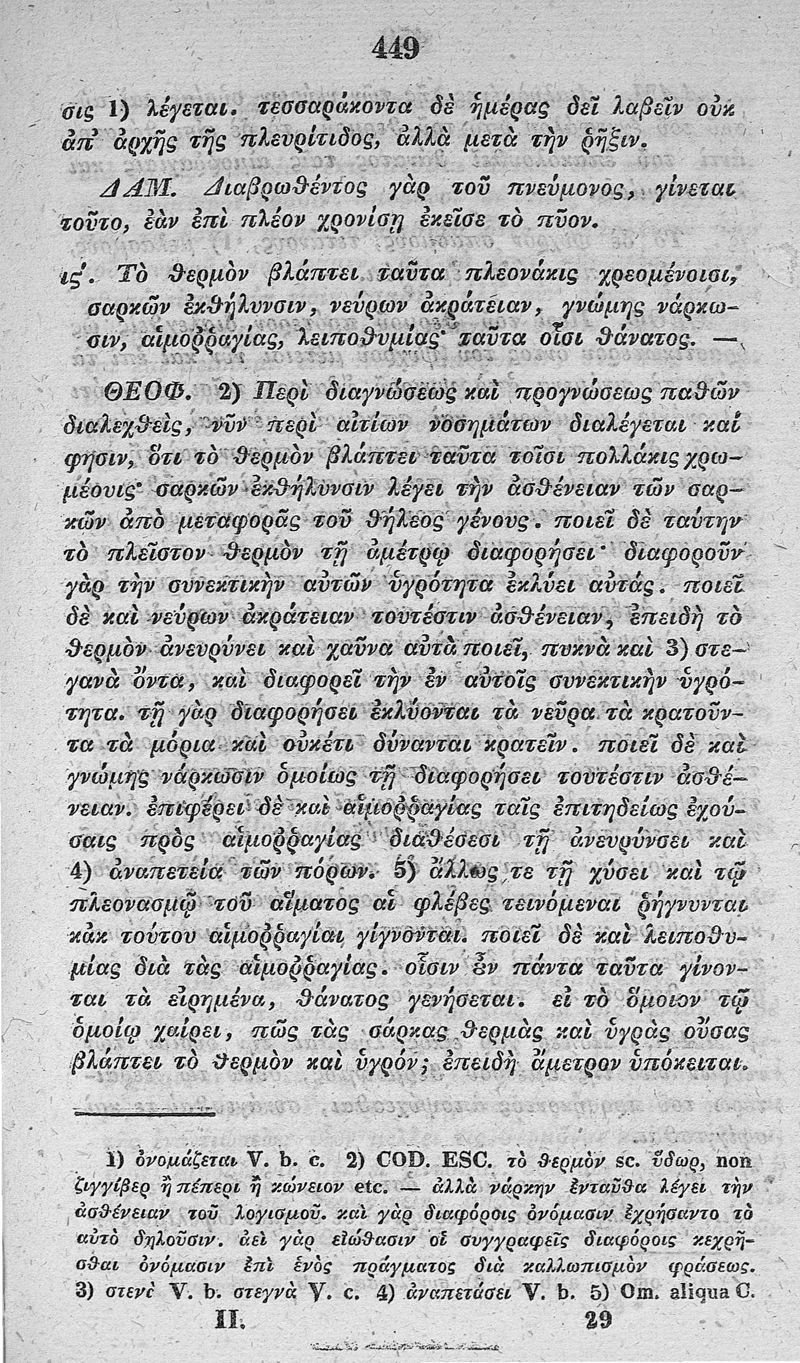 449
σις 1) λέγεται. τεσσαράκοντα δὲ ἡμέρας δεῖ λαβεῖν οὐκ
ἀπ’ ἀρχῆς τῆς πλευρίτιδος, ἀλλὰ μετὰ τὴν ῥῆξιν.
ΔΑΜ. Διαβρωθέντος γὰρ τοῦ πνεύμονος, γίνεται
τοῦτο, ἐὰν ἐπὶ πλέον χρονίσῃ ἐκεῖσε τὸ πῦον.
ις΄. Τὸ θερμὸν βλάπτει ταῦτα πλεονάκις χρεομένοισι,
σαρκῶν ἐκθήλυνσιν, νεύρων ἀκράτειαν, γνώμης νάρκω-
σιν, αἱμοῤῥαγίας, λειποθυμίας· ταῦτα οἷσι θάνατος. —
ΘΕΟΦ. 2) Περὶ διαγνώσεως καὶ προγνώσεως παθῶν
διαλεχθεὶς, νῦν περὶ αἰτίων νοσημάτων διαλέγεται καί
φησιν, ὅτι τὸ θερμὸν βλάπτει ταῦτα τοῖσι πολλάκις χρω-
μέουις· σαρκῶν ἐκθήλυνσιν λέγει τὴν ἀσθένειαν τῶν σαρ-
κῶν ἀπὸ μεταφορᾶς τοῦ θήλεος γένους. ποιεῖ δὲ ταύτην
τὸ πλεῖστον θερμὸν τῇ ἀμέτρῳ διαφορήσει· διαφοροῦν
γὰρ τὴν συνεκτικὴν αὐτῶν ὑγρότητα ἐκλύει αὐτάς. ποιεῖ
δὲ καὶ νεύρων ἀκράτειαν τουτέστιν ἀσθένειαν, ἐπειδὴ τὸ
θερμὸν ἀνευρύνει καὶ χαῦνα αὐτὰ ποιεῖ, πυκνὰ καὶ 3) στε-
γανὰ ὄντα, καὶ διαφορεῖ τὴν ἐν αὐτοῖς συνεκτικὴν ὑγρό-
τητα. τῇ γὰρ διαφορήσει ἐκλύονται τὰ νεῦρα τὰ κρατοῦν-
τα τὰ μόρια καὶ οὐκέτι δύνανται κρατεῖν. ποιεῖ δὲ καὶ
γνώμης νάρκωσιν ὁμοίως τῇ διαφορήσει τουτέστιν ἀσθέ-
νειαν. ἐπιφέρει δὲ καὶ αἱμοῤῥαγίας ταῖς ἐπιτηδείως ἐχού-
σαις πρὸς αἱμοῤῥαγίας διαθέσεσι τῇ ἀνευρύνσει καὶ
4) ἀναπετείᾳ τῶν πόρων. 5) ἄλλως τε τῇ χύσει καὶ τῷ
πλεονασμῷ τοῦ αἵματος αἱ φλέβες τεινόμεναι ῥήγνυνται
κἀκ τούτου αἱμοῤῥαγίαι γίγνονται. ποιεῖ δὲ καὶ λειποθυ-
μίας διὰ τὰς αἱμοῤῥαγίας. οἷσιν ἓν πάντα ταῦτα γίνον-
ται τὰ εἰρημένα, θάνατος γενήσεται. εἰ τὸ ὅμοιον τῷ
ὁμοίῳ χαίρει, πῶς τὰς σάρκας θερμὰς καὶ ὑγρὰς οὔσας
βλάπτει τὸ θερμὸν καὶ ὑγρόν; ἐπειδὴ ἄμετρον ὑπόκειται.
1) ὀνομάζεται V. b. c. 2) COD. ESC. τὸ θερμὸν sc. ὕδωρ, non
ζιγγίβερ ἢ πέπερι ἢ κώνειον etc. — ἀλλὰ νάρκην ἐνταῦθα λέγει τὴν
ἀσθένειαν τοῦ λογισμοῦ. καὶ γὰρ διαφόροις ὀνόμασιν ἐχρήσαντο τὸ
αὐτὸ δηλοῦσιν. ἀεὶ γὰρ εἰώθασιν οἱ συγγραφεῖς διαφόροις κεχρῆ-
σθαι ὀνόμασιν ἐπὶ ἑνὸς πράγματος διὰ καλλωπισμὸν φράσεως.
3) στενὲ V. b. στεγνὰ V. c. 4) ἀναπετάσει V. b. 5) Om. aliqua C.
II. 29